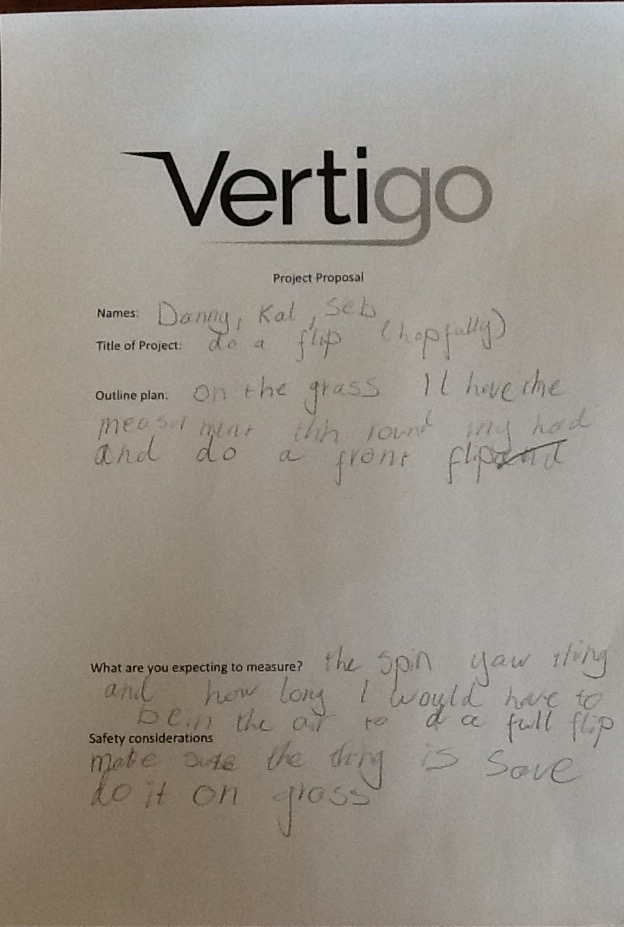 Vertigo
Project Proposal
Names: Danny, Kal, Seb
Title of Project: do a flip (hopfully)
Outline plan: on the grass I'll have the
measurment thin round my had
and do a front flip and
What are you expecting to measure? the spin yaw thing
and how long I would have to
be in the air to d a full flip
Safety considerations
make sure the thing is save
do it on grass